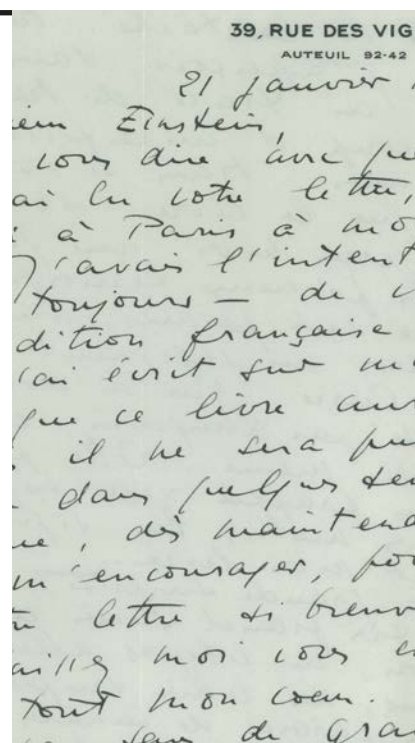 39, RUE DES VIG
AUTEUIL 92-42
21 janvier
Einstein,
vous dire avec
ai lu votre lettre,
à Paris à mo
J'avais l'intent
toujours — de
dition française
'ai écrit sur m
que ce livre au
il ne sera pu
dans quelques se
ue, dès maintena
m'encourager, po
lettre si bienv
moi vous
tout mon coeur.
de Gra